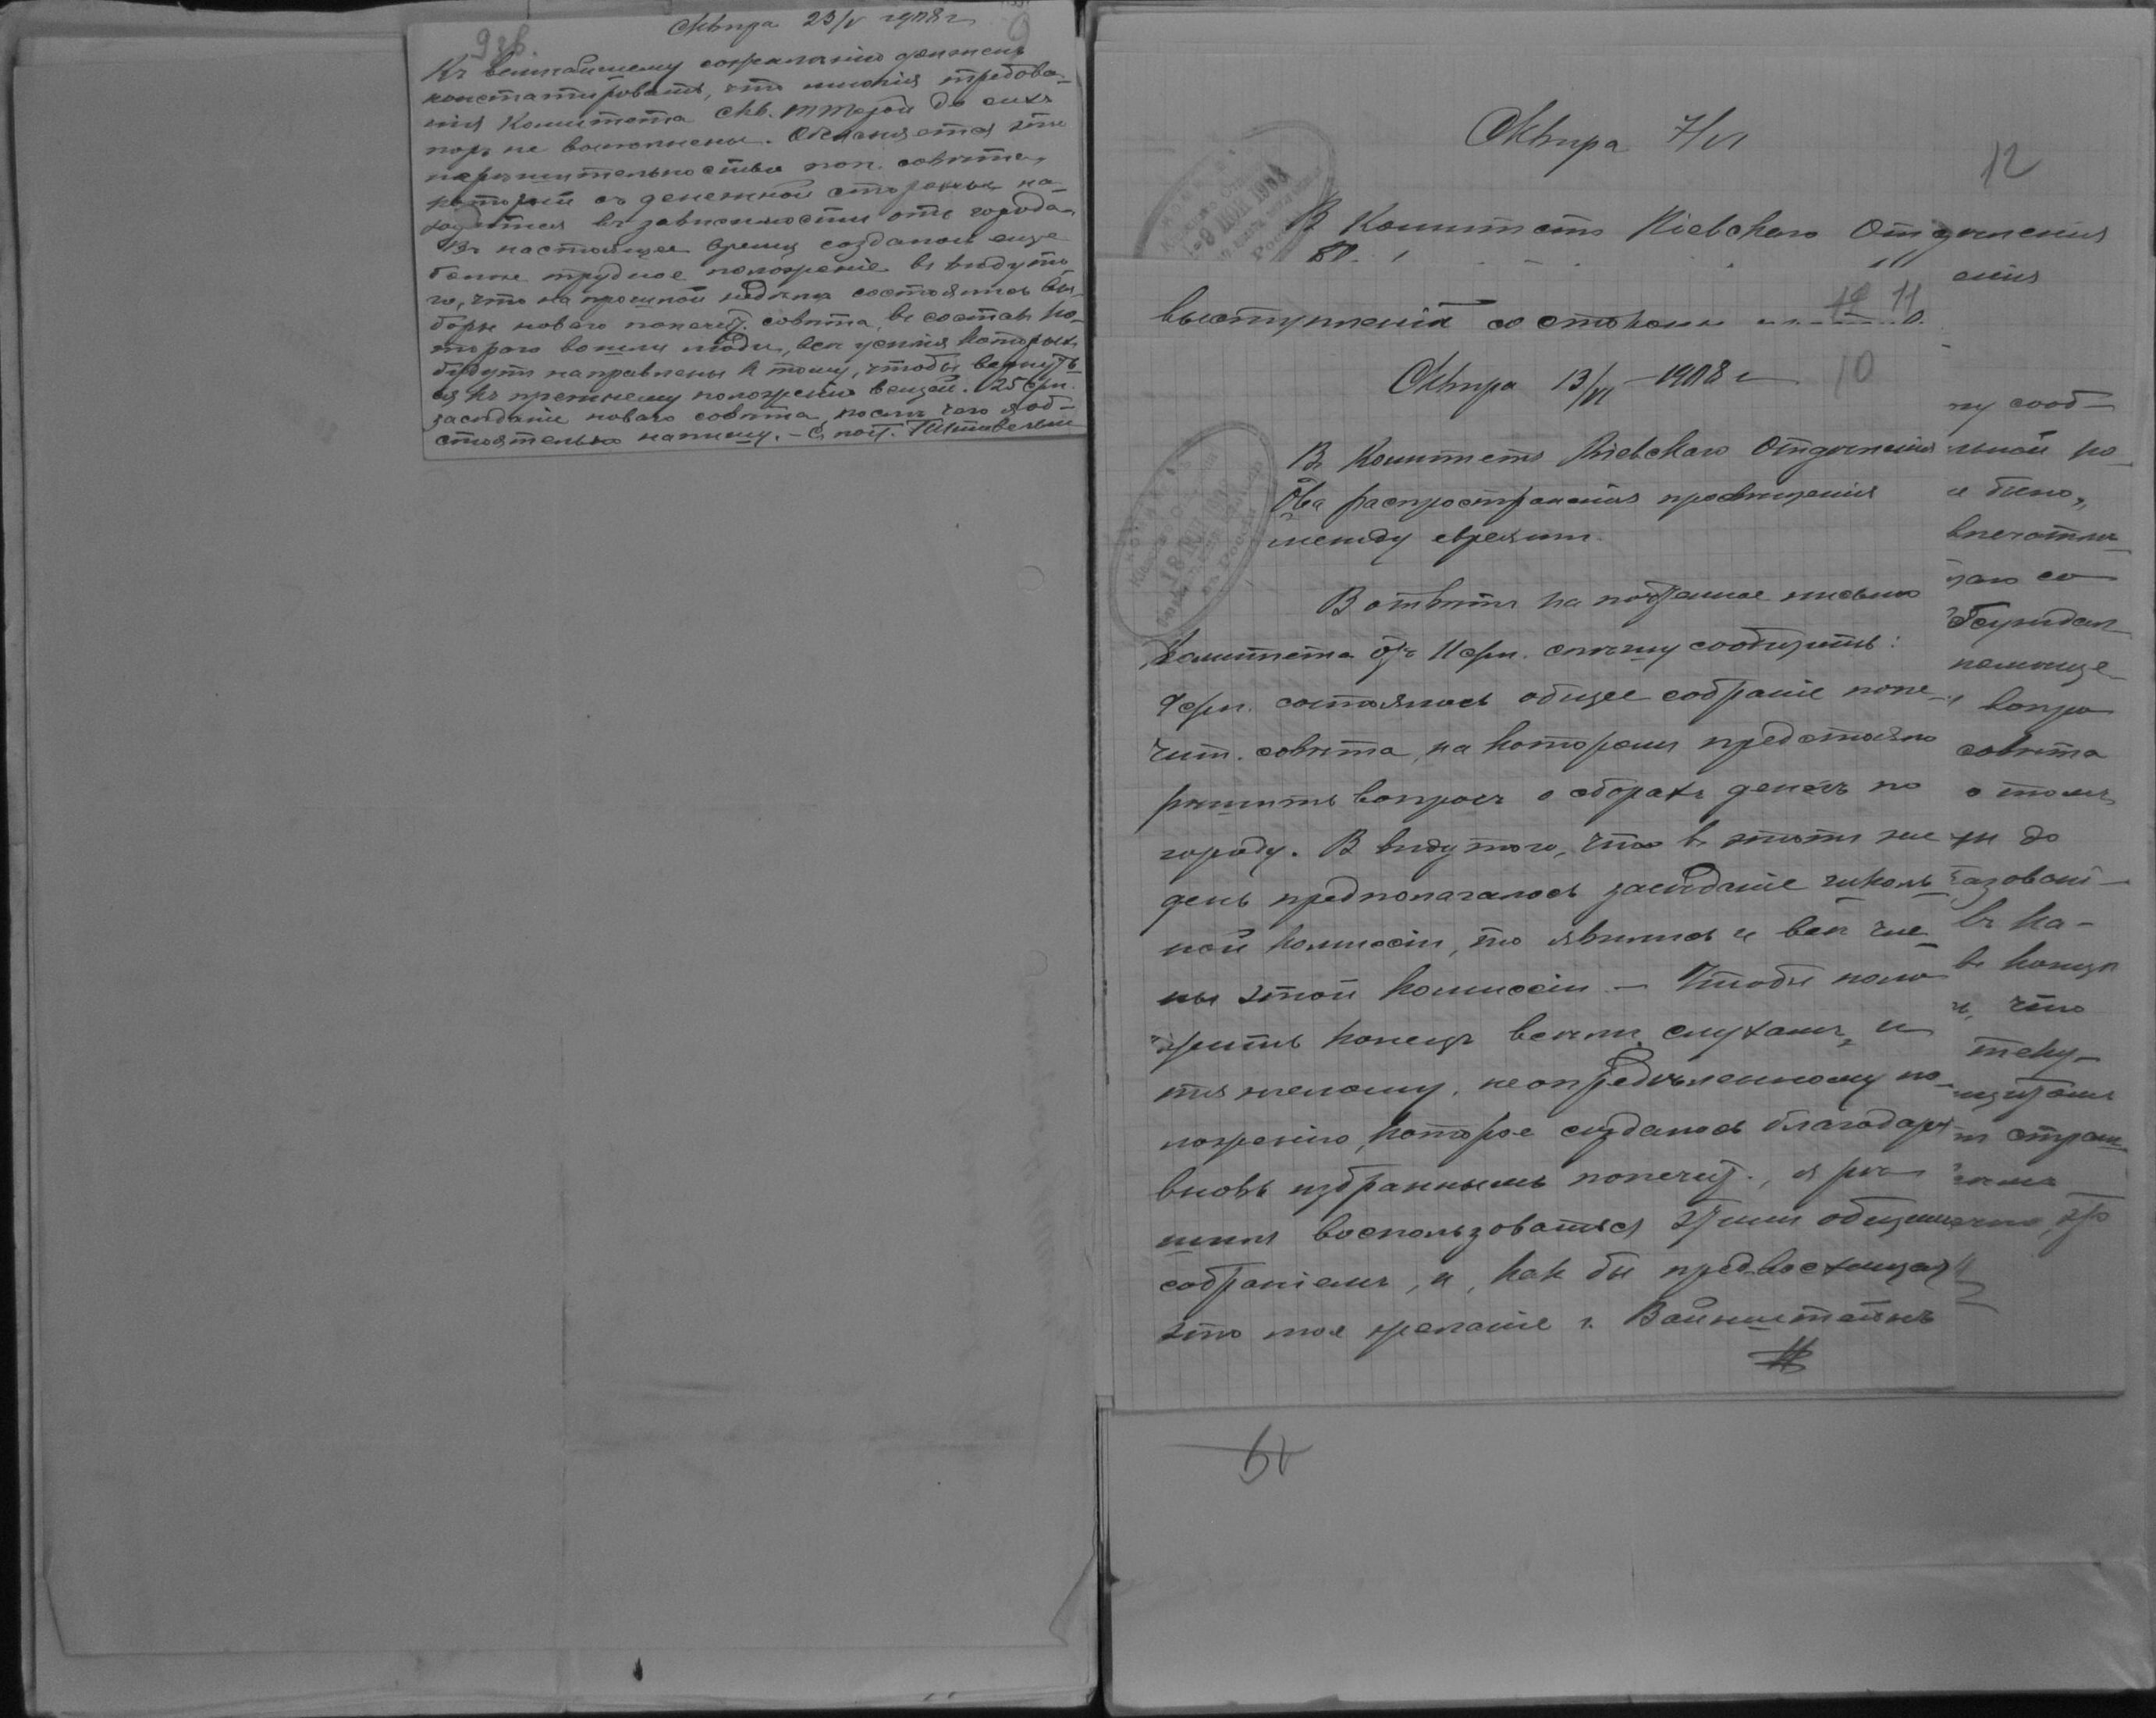 Сквира 23/V 1908 г
9 9
Къ величайшему сожалѣнію долженъ
констатировать, что многія требова-
нія Комитета Скв. ТТорой до сихъ
поръ не выполнены. Объясняется это
нерѣшительностью поп. совѣта,
который съ денежной стороны на-
ходится въ зависимости отъ города.
Въ настоящее время создалось еще
болѣе трудное положеніе въ виду то
го, что на прошлой недѣлѣ состоялись вы-
боры новаго попечит. совѣта, въ составъ ко-
тораго вошли люди, всѣ усилія которыхъ
будутъ направлены к тому, чтобы вернуть-
ся къ прежнему положенію вещей. 25 с/м.
засѣданіе новаго совѣта, послѣ чего я об-
стоятельно напишу. – С. поч.
Сквира 7/VI
12
В Комитетъ Кіевскаго Отдѣленія
выступленій со стороны
12 11
Сквира 13/VI – 1908 г
10
Въ Комитетъ Кіевскаго Отдѣленія
О-ва распространенія просвѣщенія
между евреями.
В отвѣтъ на почтенное письмо
Комитета отъ 11 с/м. спѣшу сообщить:
9 с/м. состоялось общее собраніе попе-
чит. совѣта, на которомъ предстояло
рѣшить вопросъ о сборахъ денегъ по
городу. В виду того, что въ этотъ же
день предполагалось засѣданіе школь
ной комиссіи, то явились и всѣ чле
ны этой комиссіи. – Чтобы поло
жить конецъ всѣмъ слухамъ и
тяжелому, неопредѣленному по-
ложенію, которое создалось благодаря
вновь избраннымъ попечит., я рѣ
шилъ воспользоваться этимъ общимъ
собраніемъ, и, как бы предвосхищая
это мое желаніе г. Вайнштейнъ
енія
му сооб-
льной ко-
и было,
впечатлѣ-
помѣще-
вопро
совѣта
о томъ,
до
въ ка-
въ концѣ
что
теку-